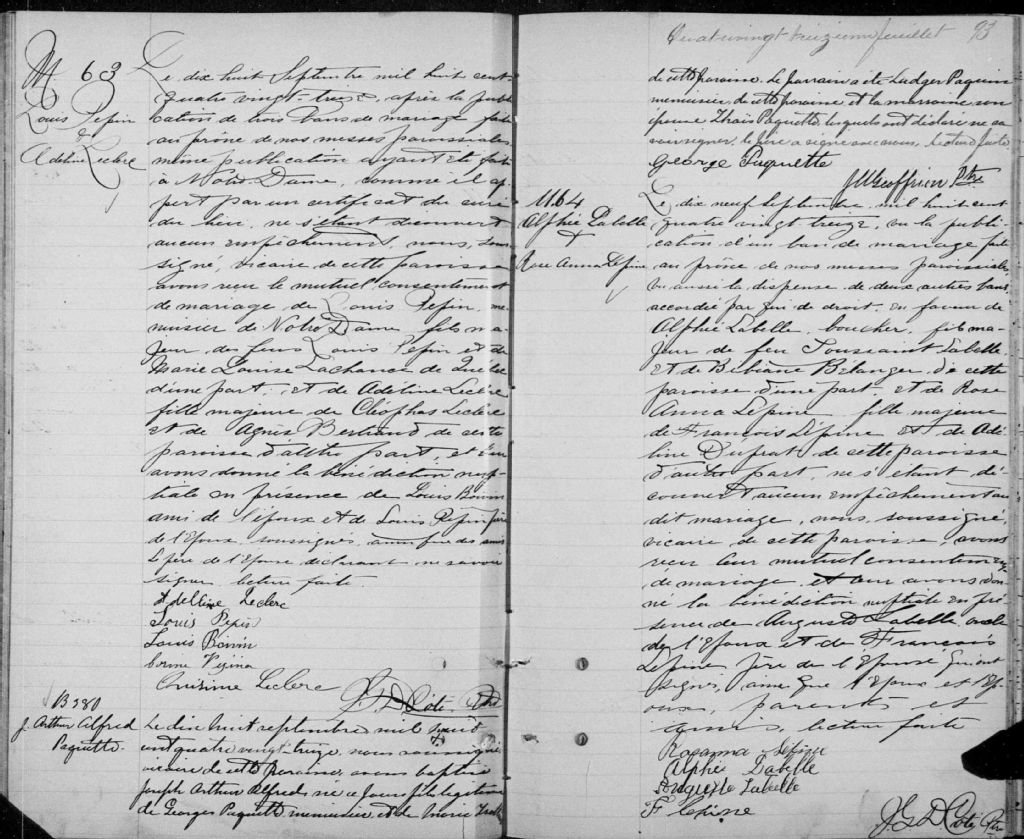 M 63
Louis Pepin
&
Adéline Leclerc
Le dix huit Septembre mil huit cent
quatre vingt-treize, après la publi
cation de trois bans de mariage faite
au prône de nos messes paroissiales
même publication ayant été faite
à Notre-Dame, comme il ap
pert par un certificat du curé
du lieu, ne s'étant découvert
aucun empêchement, nous, sous
signé, vicaire de cette paroisse
avons reçu le mutuel consentement
de mariage de Louis Pepin, me
nuisier de Notre Dame fils ma
jeur des feus Louis Pepin et de
Marie Louise Lachance de Québec
d'une part; et de Adéline Leclerc
fille majeure de Cléophas Leclerc
et de Agnès Bertrand de cette
paroisse d'autre part, et leur
avons donné la bénédiction nup
tiale en présence de Louis Boivin
ami de l'époux et de Louis Pepin père
de l'Epoux, soussignés,
Le père de l'Epouse déclarant ne savoir
signer, lecture faite
Adelline Leclerc
Louis Pepin
Louis Boivin
Pepin
Leclerc
J. G. D. Coté Ptre
B 280
J. Arthur Alfred
Paquette.
Le dix huit septembre mil huit
cent quatre vingt treize, nous soussigné
vicaire de cette paroisse, avons baptisé
Joseph Arthur Alfred, né ce jour, fils légitime
de Georges Paquette menuisier et de Marie
Quatrevingt treizième feuillet 93
de cette paroisse. Le parrain a été Ludger Paquin
menuisier de cette paroisse et la marraine son
épouse Thaïs Paquette, lesquels ont déclaré ne sa
voir signer, le père a signé avec nous. Lecture faite
George Paquette
J M Geoffrion Ptre
M 64
Alphé Labelle
&
Rose Anna Lépine
Le dix neuf Septembre, mil huit cent
quatre vingt treize, vu la publi
cation d'un ban de mariage faite
au prône de nos messes paroissiales,
vu aussi la dispense de deux autres bans,
accordée par qui de droit, en faveur de
Alphé Labelle, boucher, fils ma
jeur de feu Toussaint Labelle
et de Bibiane Bélanger, de cette
paroisse d'une part et de Rose
Anna Lépine, fille majeure
de François Lépine et de Adé
line Dufrat de cette paroisse
d'autre part, ne s'étant dé
couvert aucun empêchement au
dit mariage, nous, soussigné,
vicaire de cette paroisse, avons
reçu leur mutuel consentement
de mariage et leur avons don
né la bénédiction nuptiale en pré
sence de Auguste Labelle oncle
de l'Epoux et de François
Lépine, père de l'Epouse qui ont
signé, ainsi que l'Epoux et l'Ep
ouse, parents et
amis, lecture faite
Rosanna Lépine
Alphé Labelle
Auguste Labelle
F Lepine
J. G. D. Coté Ptre